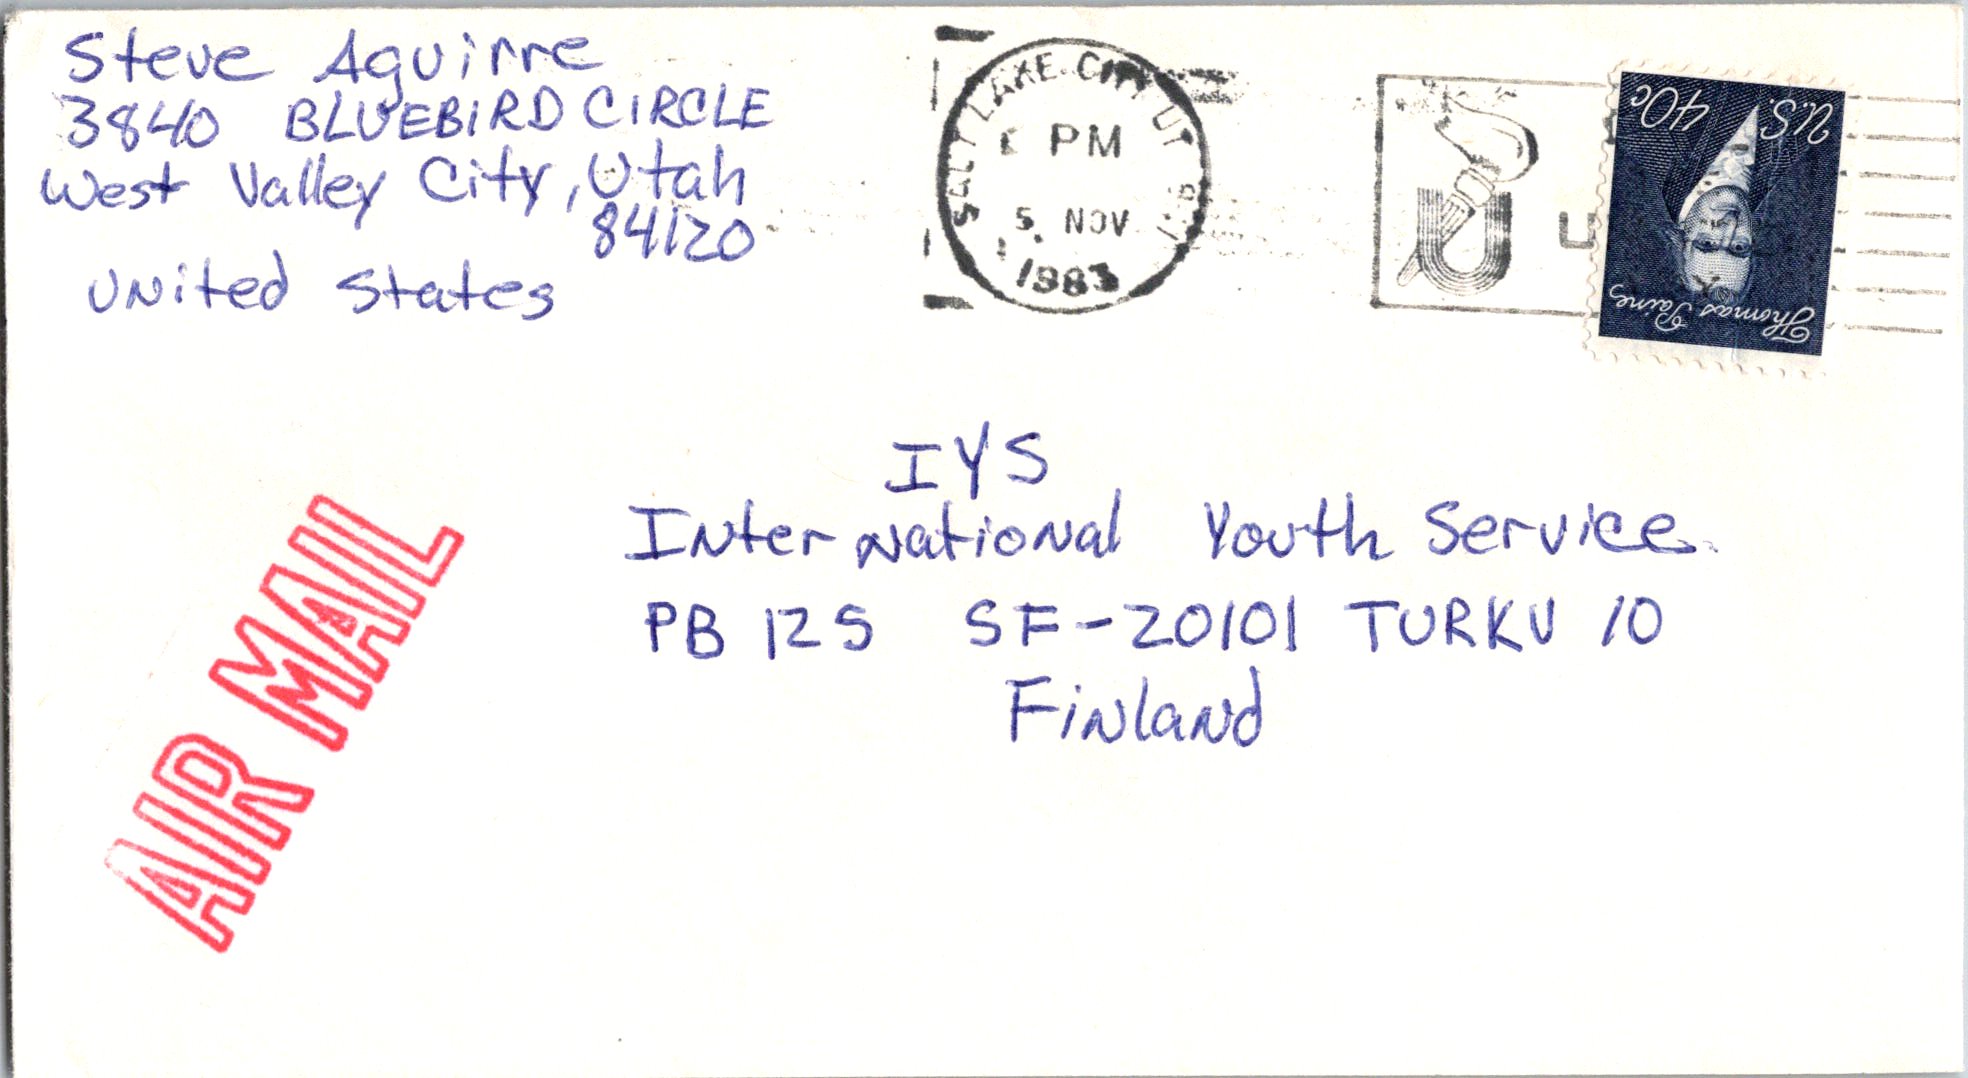 Steve Aguirre
3840 BLUEBIRD CIRCLE
West Valley City, Utah
84120
United States
SALT LAKE CITY UT
PM
5 NOV
1983
U.S. 40c
Thomas Paine
IYS
International Youth Service
PB 125 SF-20101 TURKU 10
Finland
AIR MAIL